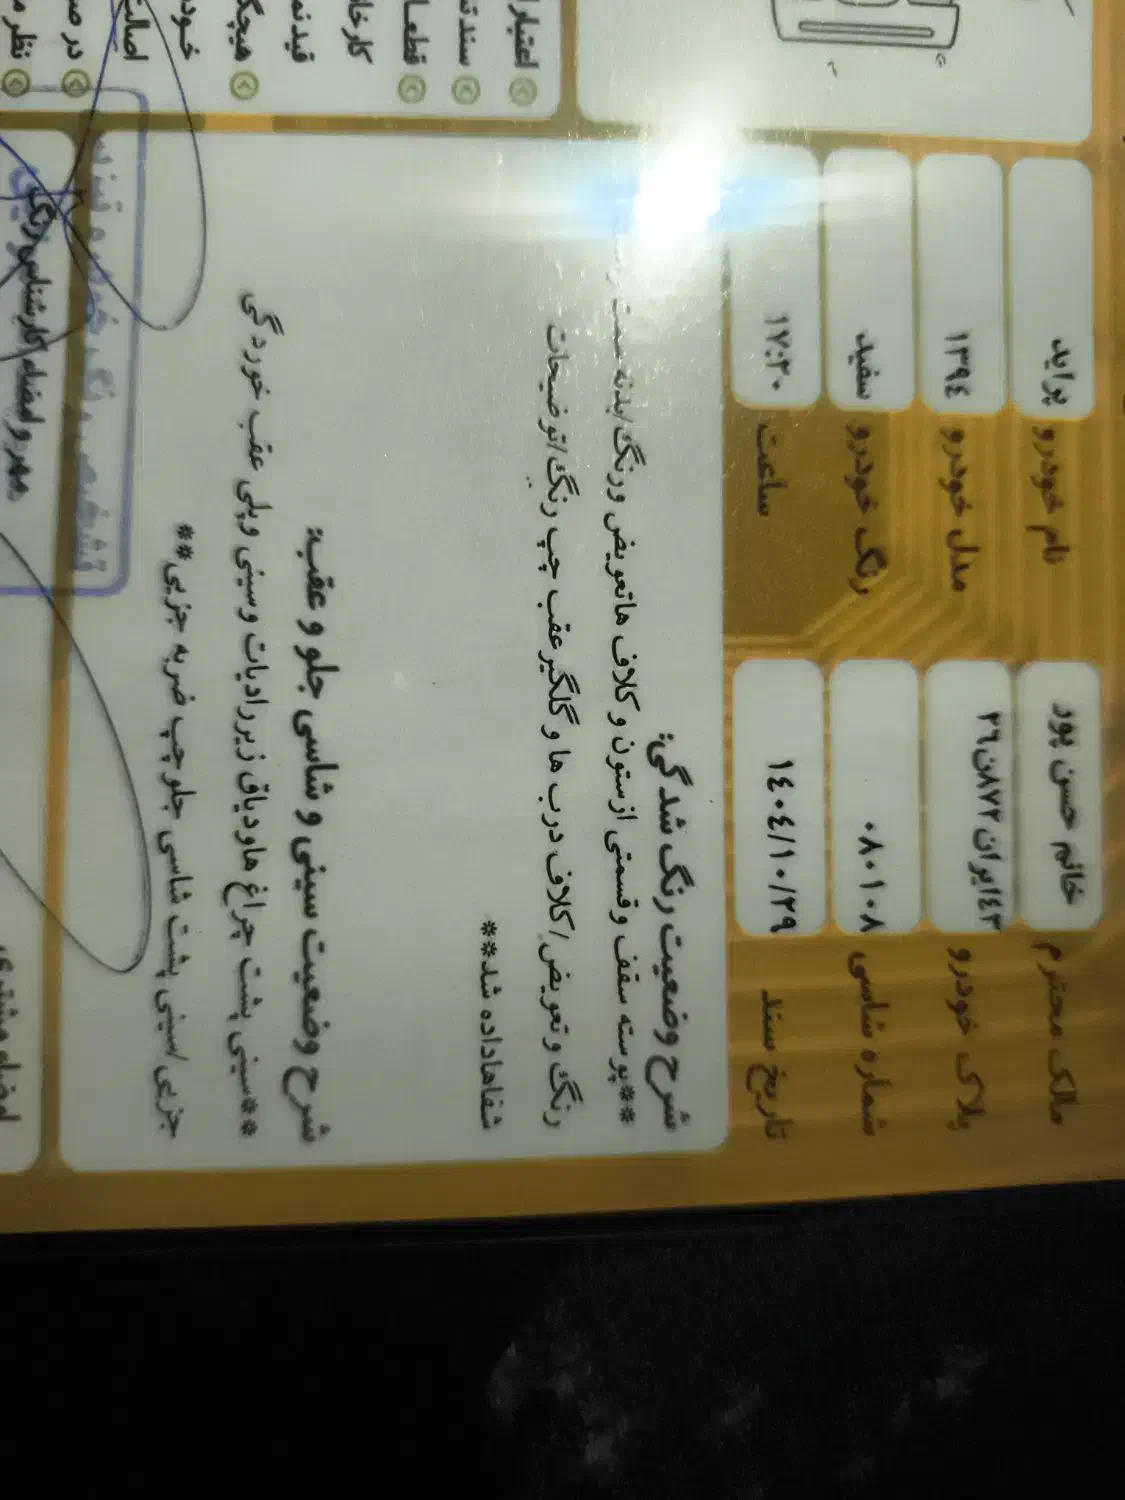 مالک محترم خانم حسن پور نام خودرو پراید
پلاک خودرو ۴۳ایران۸۷۲ن۲۶ مدل خودرو ۱۳۹٤
شماره شاسی ۰۸۰۱۰۸ رنگ خودرو سفید
تاریخ سند ۱٤۰٤/۱۰/۲۹ ساعت ۱۷:۲۰
شرح وضعیت رنگ شدگی:
**پوسته سقف وقسمتی ازستون و کلاف هاتعویض ورنگ/بدنه سمت
رنگ و تعویض/کلاف درب ها و گلگیرعقب چپ رنگ/توضیحات
شفاهاداده شد**
شرح وضعیت سینی و شاسی جلو و عقب:
**سینی پشت چراغ هاودیاق زیررادیات وسینی وپلی عقب خوردگی
جزیی/سینی پشت شاسی جلوچپ ضربه جزیی**
اعتبار
سند
کارخا
قیدنم
هیچگ
خود
اصالت
در ص
نظر م
مهر و امضاء کارشناس رنگ
امضاء مشتری